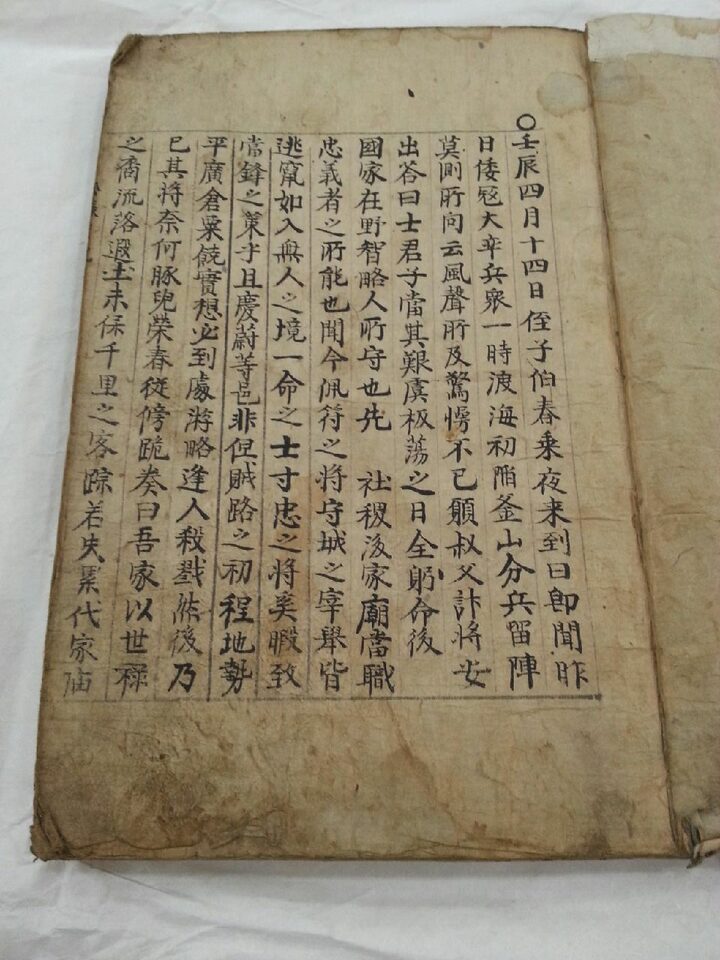 〇壬辰四月十四日侄子伯春乘夜来到曰卽聞昨
日倭寇大辛兵衆一時渡海初陷釜山分兵留陣
莫測所向云風聲所及驚愕不已願叔父計將安
出答曰士君子當其艱虞板蕩之日全躬命後
國家在野智略人所守也先 社稷後家廟當職
忠義者之所能也聞今佩符之將守城之宰擧皆
逃竄如入無人之境一命之士寸忠之將奚暇致
當鋒之策乎且慶蔚等邑非但賊路之初程地勢
平廣倉粟儲實想必到處游略逢人殺戮然後乃
已其將奈何豚兒榮春從傍跪奏曰吾家以世祿
之裔流落遐土未保千里之客踪若失累代家庙